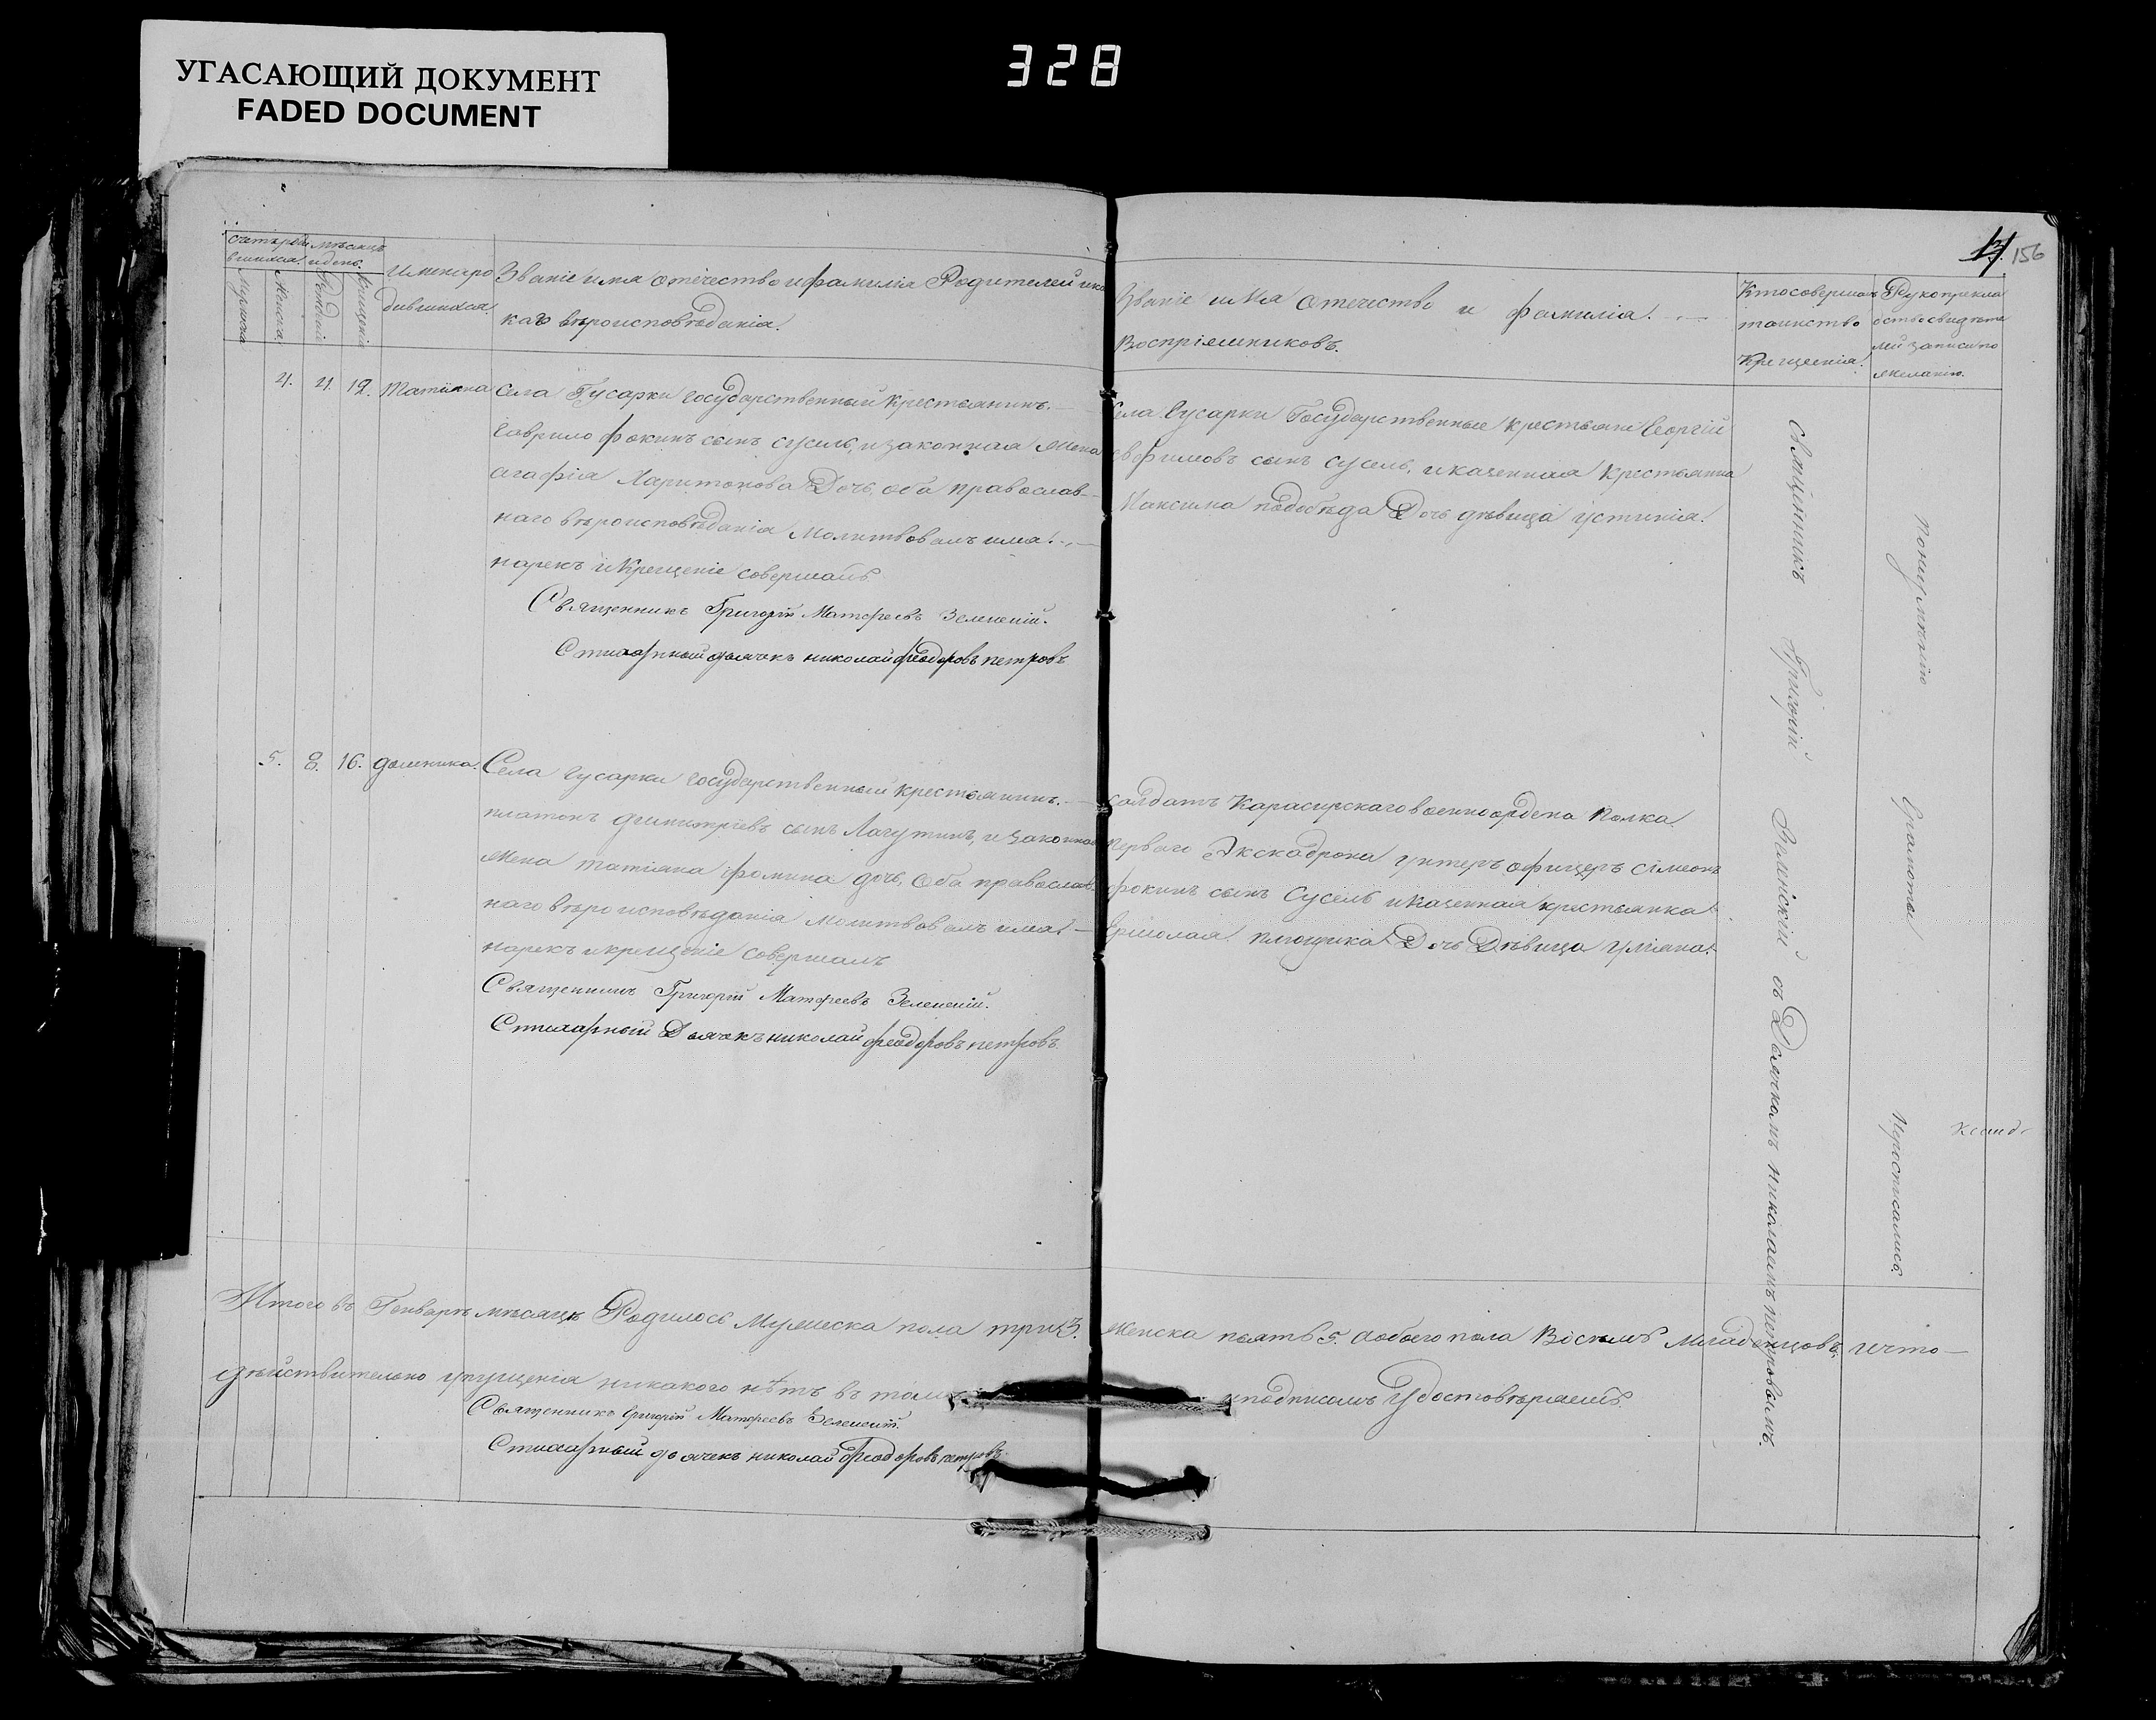 УГАСАЮЩИЙ ДОКУМЕНТ
FADED DOCUMENT
328
156
Счетъ роди мѣсяцъ
вшихся. и день.
Мужеска
Женска
Рожденія
Крещенія
Имена ро
дившихся.
Званіе имя отечество и фамилія Родителей и ка
каго вѣроисповѣданія.
Званіе имя отечество и фамилія.
Воспріемниковъ.
Кто совершалъ
таинство
Крещенія.
Рукоприкла
дство свидѣте
лей записи по
желанію.
4. 4. 12. Татіана
Села Гусарки государственный крестьянинъ.
Гаврило фокинъ сынъ сусель, и законная жена
агафія Харитонова Дочь, оба православ-
наго вѣроисповѣданія Молитвовалъ имя
нарекъ и Крещеніе совершалъ
Священникъ Григорій Матфеевъ Зеленскій.
Стихарный дьячекъ николай феодоровъ петровъ
Села Гусарки Государственные крестьяне Георгій
сынъ сусель, и казенная крестьянка
Максима подобѣда Дочь дѣвица устинія.
5. 8. 16. домника.
Села гусарки государственный крестьянинъ.
платонъ димитріевъ сынъ Лагутинъ, и законная
жена татіана фомина дочь, оба православ-
наго вѣроисповѣданія молитвовалъ имя
нарекъ и крещеніе совершалъ
Священникъ Григорій Матфеевъ Зеленскій.
Стихарный Дьячекъ николай феодоровъ петровъ.
солдатъ Карасирскаго военно ордена полка
перваго Экскадрона унтеръ офицеръ симеонъ
фокинъ сынъ Сусель и казенная крестьянка
Ермолая Дочь Дѣвица уліяна.
священникъ Григорій Зеленскій съ Дьячкомъ николаемъ петровымъ.
Понеумѣнію Грамоты Неросписались.
Итого въ Генварѣ мѣсяцѣ Родилось Мужеска пола три 3. Женска пять 5. А обоего пола Восемь младенцовъ, и что
дѣйствительно упущенія никакого нѣтъ въ томъ подписомъ Удостовѣряемъ.
Священникъ Григорій Матфеевъ Зеленскій.
Стихарный дьячекъ николай Феодоровъ петровъ.